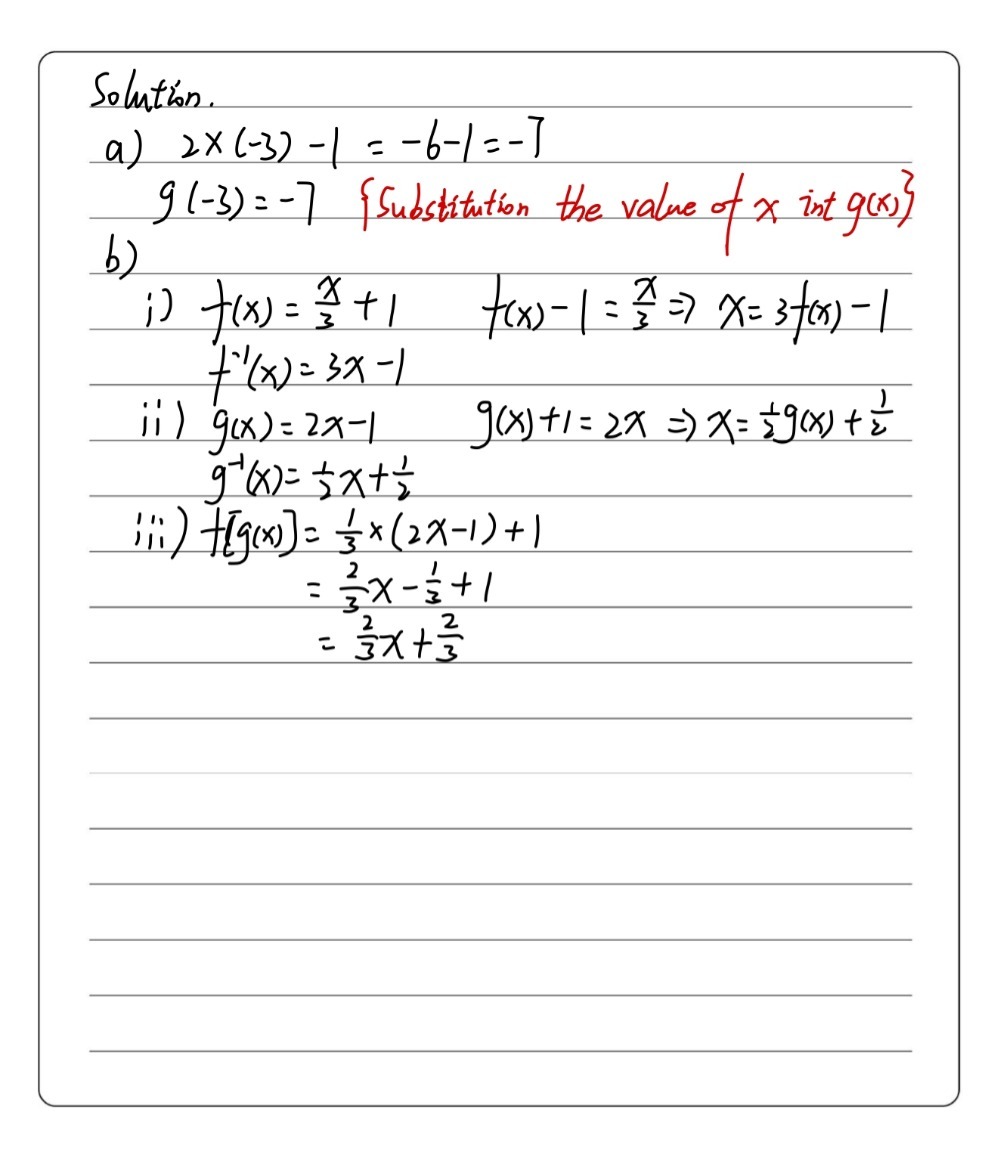 Solution.
a) 2×(-3) -1 = -6-1 = -7
g(-3) = -7 {Substitution the value of x int g(x)}
b)
i) f(x) = x/3 + 1 f(x) - 1 = x/3 ⇒ x = 3f(x) - 1
f⁻¹(x) = 3x - 1
ii) g(x) = 2x - 1 g(x) + 1 = 2x ⇒ x = 1/2 g(x) + 1/2
g⁻¹(x) = 1/2 x + 1/2
iii) f[g(x)] = 1/3 × (2x - 1) + 1
= 2/3 x - 1/3 + 1
= 2/3 x + 2/3